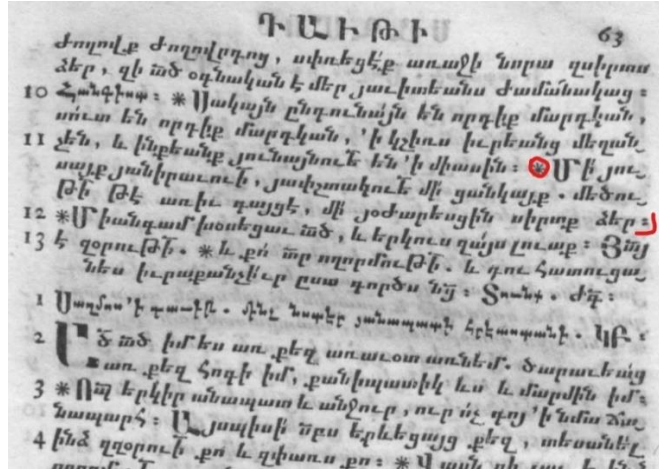 ԴԱՒԻԹԻ 63
ժողովք ժողովրդոց , սփռեցէք առաջի նորա զսիրտս
ձեր , զի ա՟ծ օգնական է մեր յաւիտեանս ժամանակաց :
10 Հանգիստ : * Սակայն ընդունայն են որդիք մարդկան ,
սուտ են որդիք մարդկան , ՚ի կշիռս իւրեանց մեղան
11 չեն , և ինքեանք յունայնուէ՟ են ՚ի միասին : * Մի՛ յու
սայք յանիրաւուի՟ , յափշտակուէ՟ մի՛ ցանկայք . մեծու
թի՟ թէ առիւ գայցէ , մի՛ յօժարեսցին սիրտք ձեր :
12 * Միանգամ խօսեցաւ ա՟ծ , և երկուս զայս լուաք :
13 է զօրութի՟ . * և քո՛ տ՟ր ողորմութի՟ . և դու հատուցա
նես իւրաքանչիւր ըստ գործս ն՟ց : Տունք .
1 Սաղմոս ՚ի դաւիթ . մինչ էր յանապատին հրէաստանի . ԿԲ :
2 Ա՟ծ ա՟ծ իմ ես առ քեզ առաւօտ առնեմ . ծարաւեաց
առ քեզ հոգի իմ , քանիպատիկ ևս և մարմին իմ :
3 * երկիր անապատ և անջուր , ուր ոչ գոյ ՚ի նմա ճա
նապարհ : Այսպիսի երևեցայց քեզ , տեսանել
4 ինձ զզօրուի՟ քո և զփառս քո : *